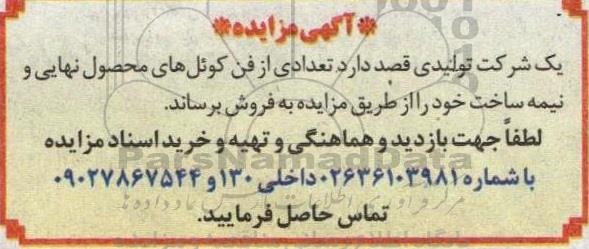 *آگهی مزایده*
یک شرکت تولیدی قصد دارد تعدادی از فن کوئل‌های محصول نهایی و
نیمه ساخت خود را از طریق مزایده به فروش برساند.
لطفاً جهت بازدید و هماهنگی و تهیه و خرید اسناد مزایده
با شماره ۰۲۶۳۶۱۰۳۹۸۱ داخلی ۱۳۰ و ۰۹۰۲۷۸۶۷۵۴۴
تماس حاصل فرمایید.
ParsNamadData